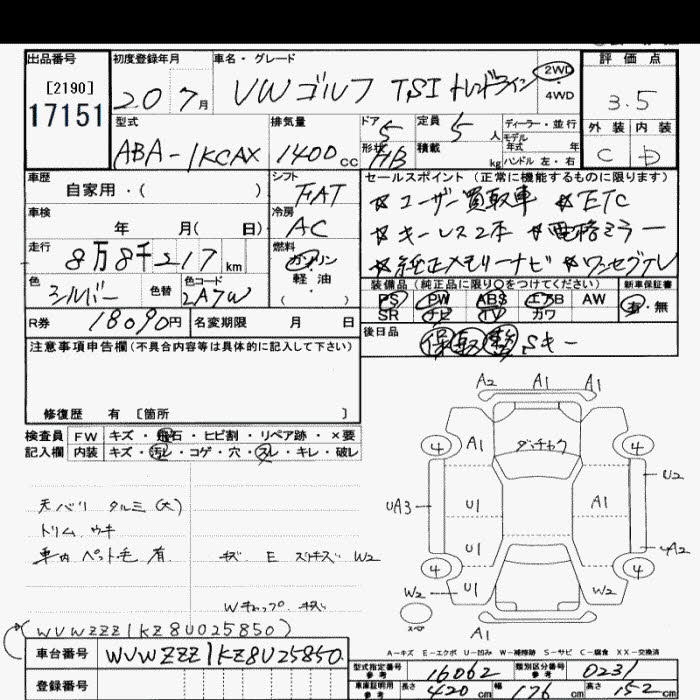 出品番号 初度登録年月 車名・グレード 評価点
[2190]
17151
20 7月 VWゴルフ TSI トレンドライン 2WD 4WD 3.5
型式 排気量 ドア 5 定員 5人 ディーラー・並行 外装 内装
ABA-1KCAX 1400cc 形状 HB 積載 kg モデル年式 年 ハンドル 左・右 C D
車歴 シフト セールスポイント(正常に機能するものに限ります)
自家用・( ) FAT ☆ユーザー買取車 ☆ETC
車検 冷房
年 月( 日) AC ☆キーレス2本 ☆電格ミラー
走行 燃料
8万8千217km ガソリン ☆純正メモリーナビ ☆ワンセグTV
軽油
( )
色 色替 色コード 装備品(純正品に限り○をつけてください) 新車保証書
シルバー 2A7W PS PW ABS エアB AW 有・無
SR ナビ TV カワ
R券 18090円 名変期限 月 日 後日品 保 取 整 Sキー
注意事項申告欄(不具合内容等は具体的に記入して下さい)
修復歴 有 [箇所 ]
検査員 FW キズ・飛石・ヒビ割・リペア跡・×要
記入欄 内装 キズ・汚レ・コゲ・穴・スレ・キレ・破レ
天バリ タルミ(大)
トリム ウキ
車内 ペット毛 有
キズ E スリキズ W2
Wチップ キズ
A2 A1 A1
4 A1 4 U2
UA3 U1 A1
U1 UA2
4 4
W2 U1 W2
スペア
A1
(WVWZZZ1KZ8U025850)
A-キズ E-エクボ U-凹み W-補修跡 S-サビ C-腐食 XX-交換済
車台番号 WVWZZZ1KZ8U025850
型式指定番号 参考 16062 類別区分番号 参考 0231
登録番号
車庫証明用 参考 長さ 420cm 幅 176cm 高さ 152cm